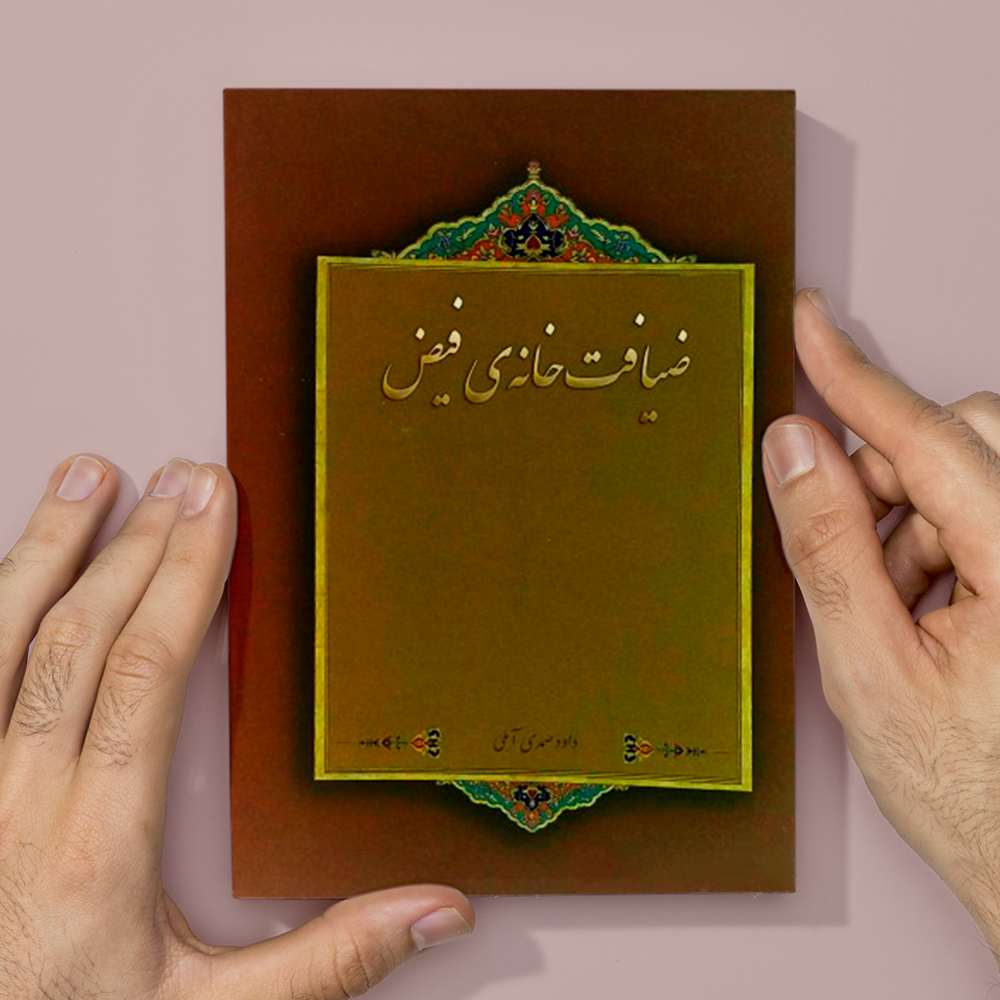 ضیافت‌خانه‌ی فیض
داود صمدی آملی